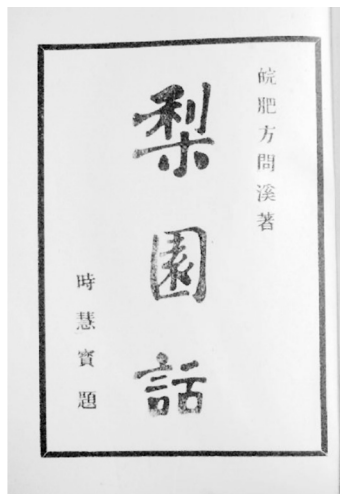 皖肥方問溪著
梨園話
時慧寶題